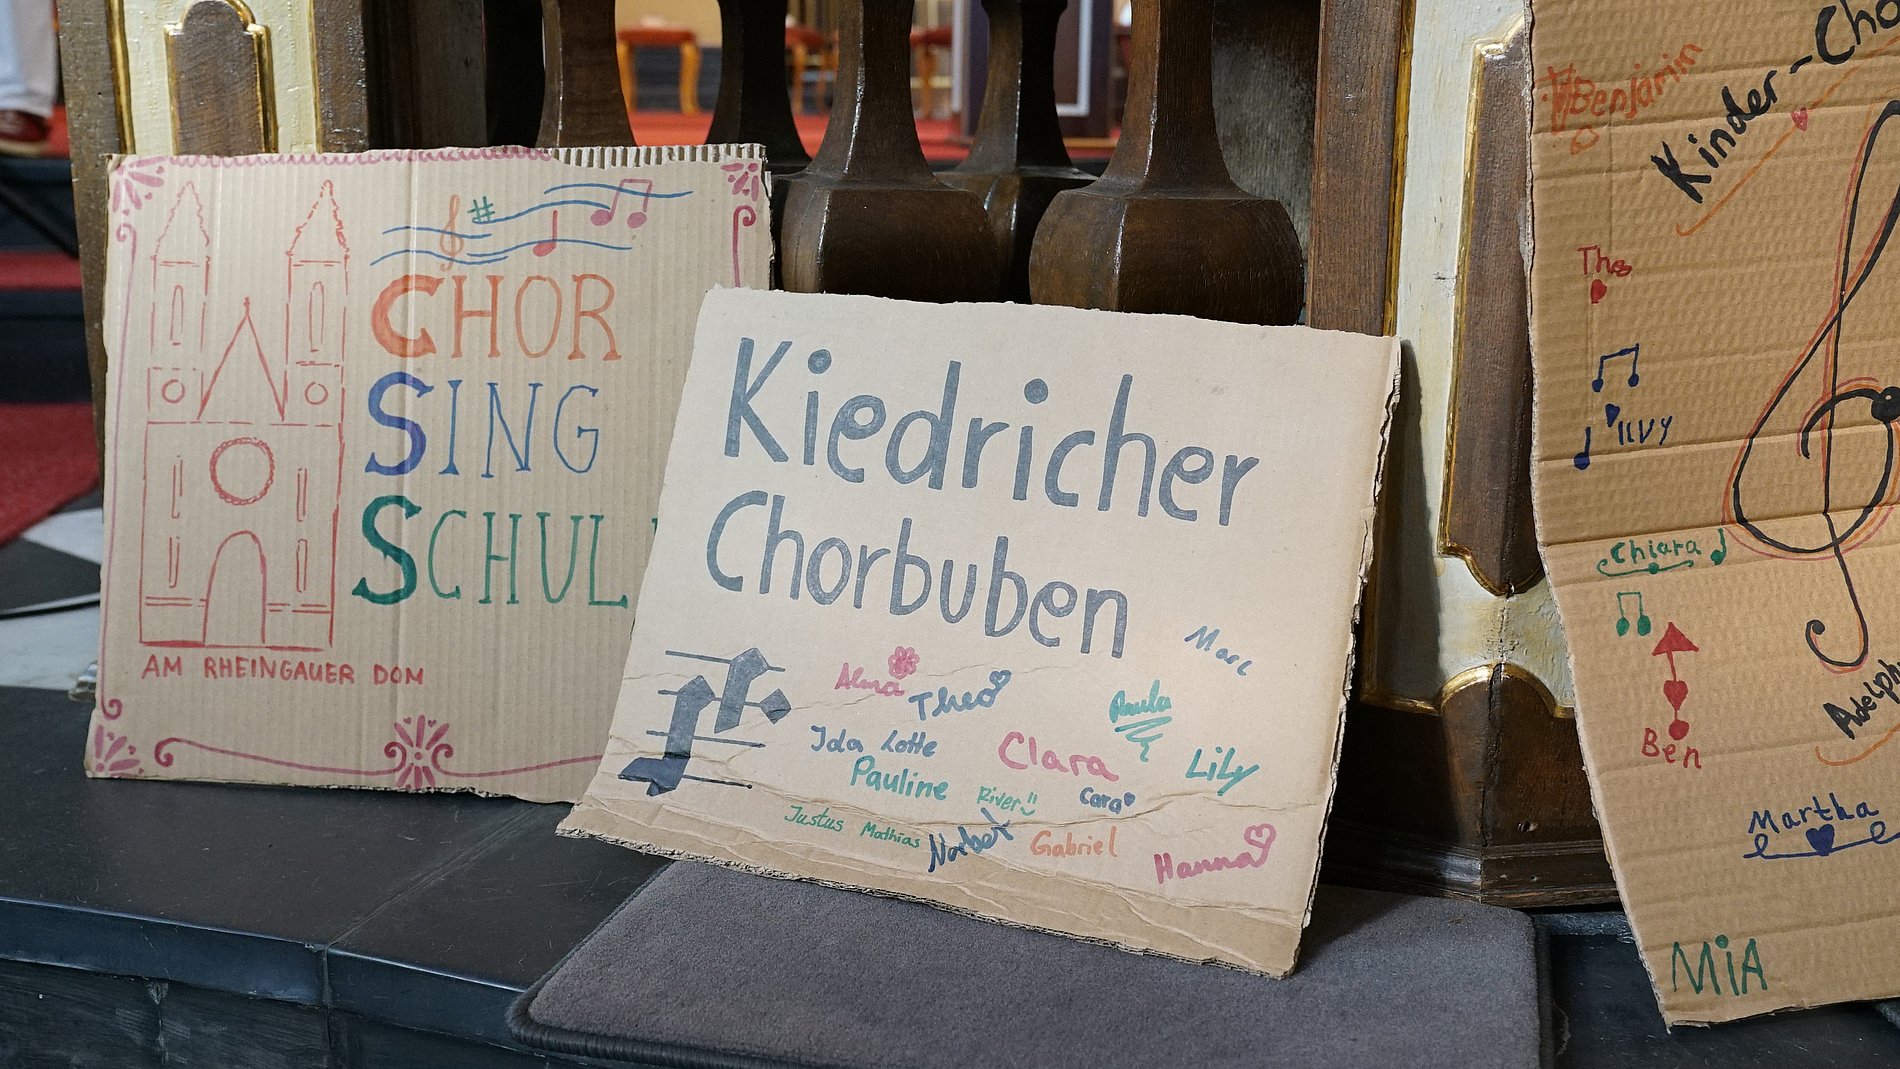 CHOR
SING
SCHUL
AM RHEINGAUER DOM
Kiedricher
Chorbuben
Marc
Alma Theo Paula
Ida Lotte Clara Lily
Pauline River Cara
Justus Mathias Norbert Gabriel Hanna
Kinder-Cho
Benjamin
Theo
Chiara
Ben
Adelph
Martha
MiA